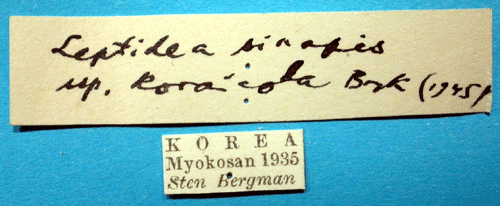 Leptidea sinapis
ssp. koraicola Bryk (1945)
K O R E A
Myokosan 1935
Sten Bergman